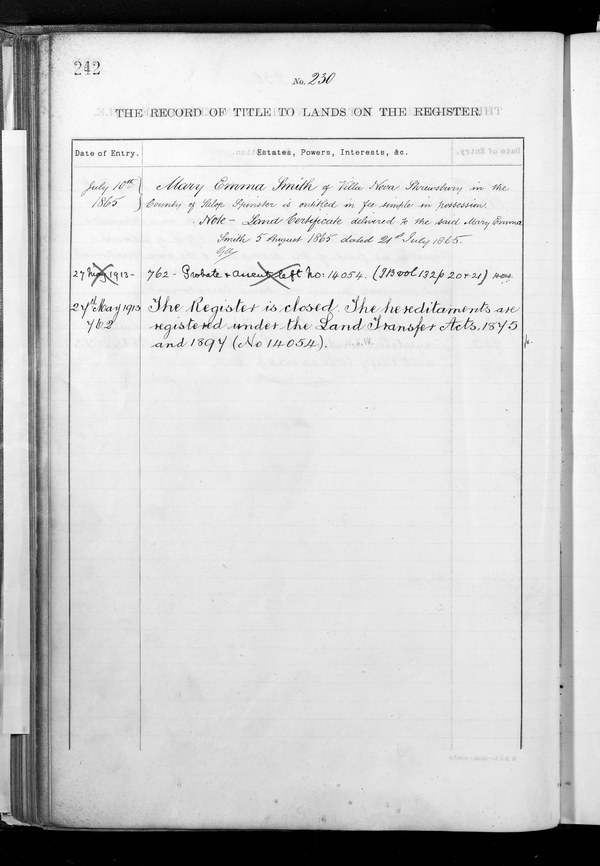 242
No. 230
THE RECORD OF TITLE TO LANDS ON THE REGISTER
Date of Entry.
Estates, Powers, Interests, &c.
July 10th 1865
Mary Emma Smith of Villa Nova Shrewsbury in the
County of Salop Spinster is entitled in fee simple in possession.
Note - Land Certificate delivered to the said Mary Emma
Smith 5 August 1865 dated 21st July 1865.
27 May 1913 - 762 - Probate & assent left No: 14054. (IB vol 132 p 20 & 21)
27th May 1913
762
The Register is closed. The hereditaments are
registered under the Land Transfer Acts, 1875
and 1897 (No 14054).